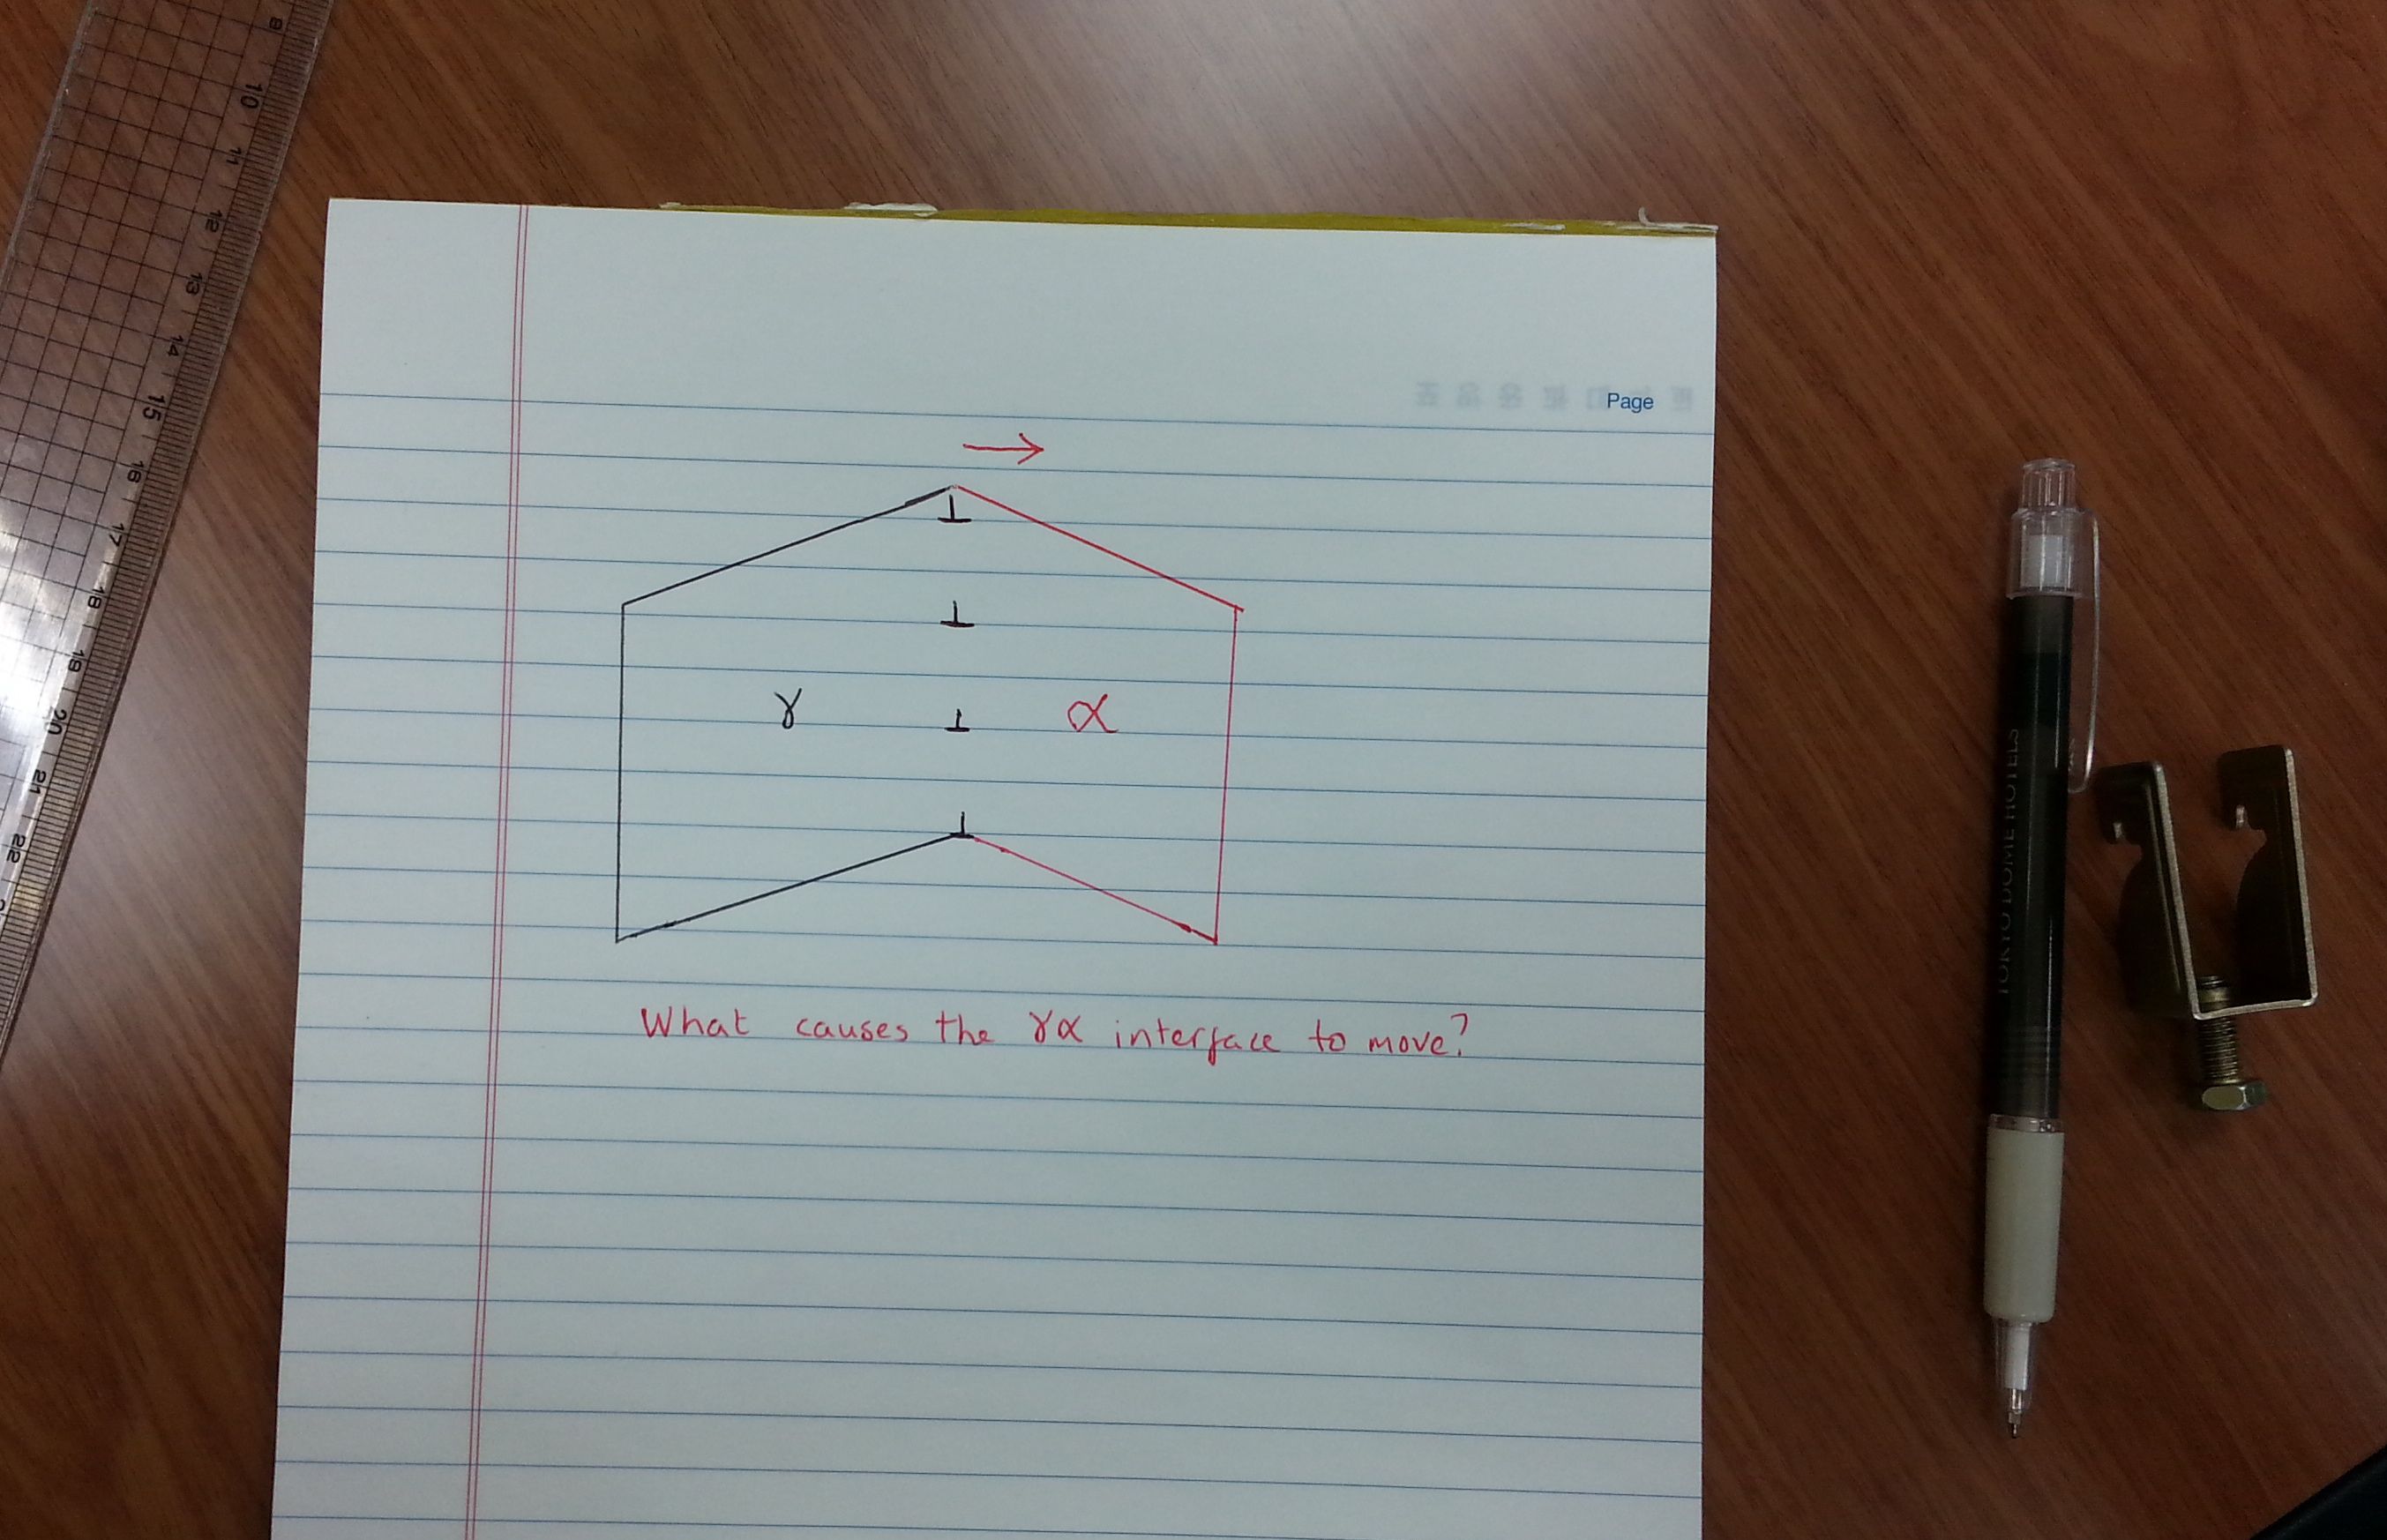 8
10
11
12
13
14
15
16
17
18
19
20
21
22
Page
γ α
What causes the γα interface to move?
TOKYO DOME HOTELS